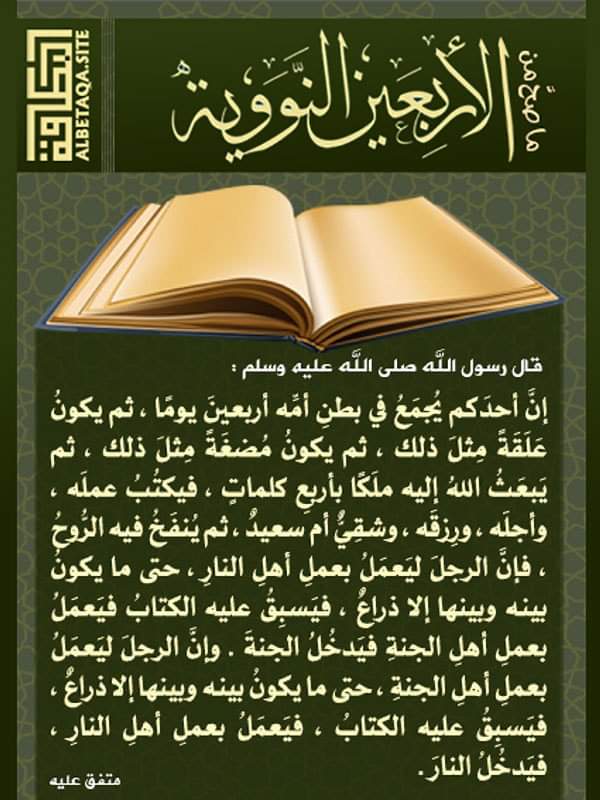 ما صح من
الأربعين النووية
البطاقة
ALBETAQA.SITE
قال رسول اللَّه صلى اللَّه عليه وسلم :
إنَّ أحدَكم يُجمَعُ في بطنِ أمِّه أربعينَ يومًا ، ثم يكونُ
عَلَقَةً مِثلَ ذلك ، ثم يكونُ مُضغَةً مِثلَ ذلك ، ثم
يَبعَثُ اللهُ إليه ملَكًا بأربعِ كلماتٍ ، فيَكتُبُ عملَه ،
وأجلَه ، ورِزقَه ، وشقِيٌّ أم سعيدٌ ، ثم يُنفَخُ فيه الرُّوحُ
، فإنَّ الرجلَ ليَعمَلُ بعملِ أهلِ النارِ ، حتى ما يكونُ
بينه وبينها إلا ذراعٌ ، فيَسبِقُ عليه الكتابُ فيَعمَلُ
بعملِ أهلِ الجنةِ فيَدخُلُ الجنةَ . وإنَّ الرجلَ ليَعمَلُ
بعملِ أهلِ الجنةِ ، حتى ما يكونُ بينه وبينها إلا ذراعٌ ،
فيَسبِقُ عليه الكتابُ ، فيَعمَلُ بعملِ أهلِ النارِ ،
فيَدخُلُ النارَ .
متفق عليه